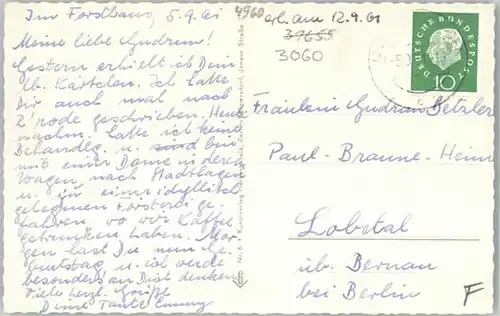 Im Forsthaus, 5.9.61
Meine liebe Gudrun!
Gestern erhielt ich Dein
lb. Kärtchen. Ich hatte
Dir auch mal nach
R'rode geschrieben. Heute
nachm. hatte ich keine
Behandlg. u. sind bin
mit einer Dame in deren
Wagen, nach Stadthagen
u. zu einer idyllisch
gelegenen Försterei ge-
fahren wo wir Kaffee
getrunken haben. Mor-
gen hast Du nun Ge-
burtstag u. ich werde
besonders an Dich denken.
Viele herzl. Grüße
Deine Tante Emmy
4960
gel. am 12.9.61
39655
3060
DEUTSCHE BUNDESPOST
10
Fräulein Gudrun Ketzler
Paul-Braune-Heim
Lobetal
üb. Bernau
bei Berlin
F